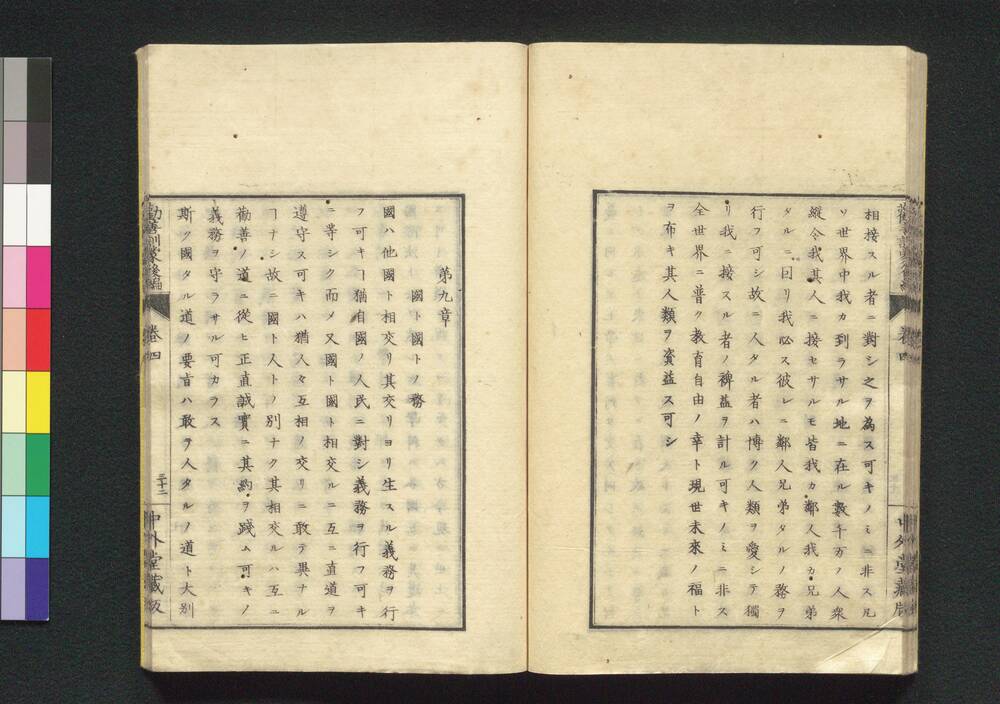 相接スル者ニ對シ之ヲ為ス可キノミニ非ス凡
ソ世界中我カ到ラサル地ニ在ル數千万ノ人衆
縦令我其人ニ接セサルモ皆我カ鄰人我カ兄弟
タルニ因リ我必ス彼レニ鄰人兄弟タルノ務ヲ
行フ可シ故ニ人タル者ハ博ク人類ヲ愛シテ獨
リ我ニ接スル者ノ裨益ヲ計ル可キノミニ非ス
全世界ニ普ク教育自由ノ幸ト現世未來ノ福ト
ヲ布キ其人類ヲ資益ス可シ
第九章
國ト國トノ務
國ハ他國ト相交リ其交リヨリ生スル義務ヲ行
フ可キヿ猶自國ノ人民ニ對シ義務ヲ行フ可キ
ニ等シク而メ又國ト國ト相交ルニ互ニ直道ヲ
遵守ス可キハ猶人々互相ノ交リニ敢テ異ナル
ヿナシ故ニ國ト人トノ別ナク其相交ルハ互ニ
勸善ノ道ニ從ヒ正直誠實ニ其約ヲ踐ム可キノ
義務ヲ守ラサル可カラス
斯ク國タル道ノ要旨ハ敢ヲ人タルノ道ト大別
勸善訓蒙後編
卷四
三十二
中外堂藏版